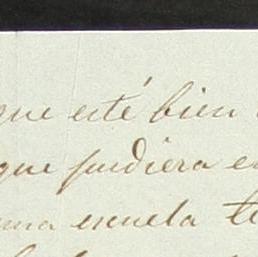 que esté bien
que pudiera e
una escuela te